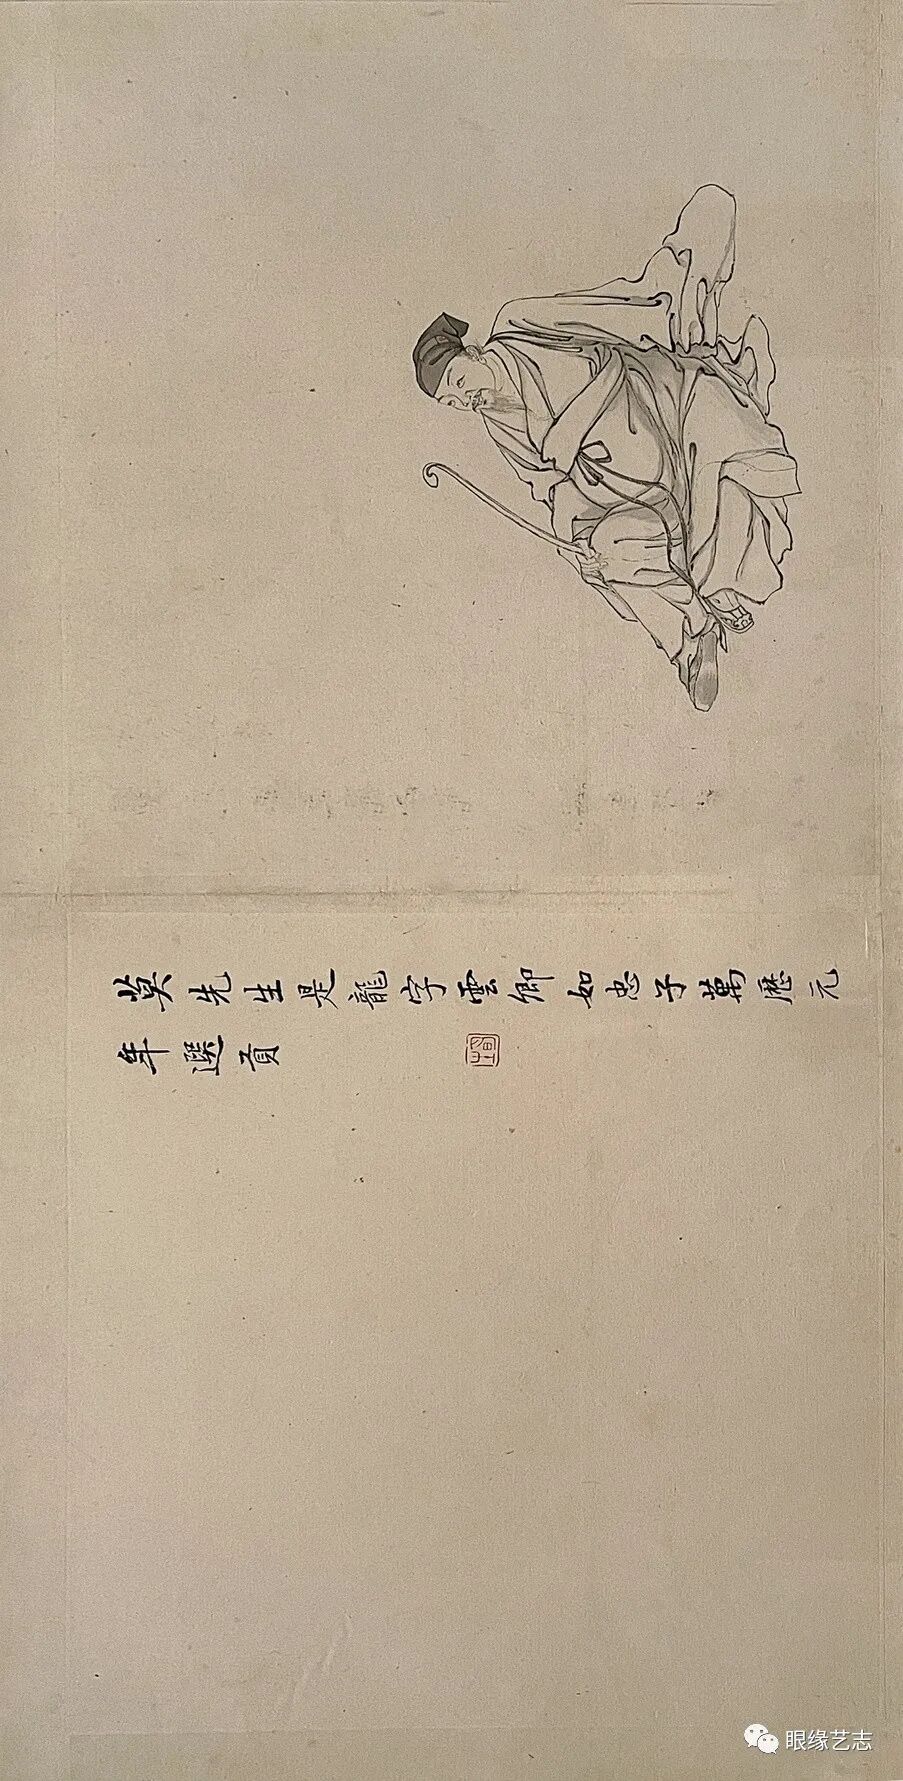 莫先生是龍字雲卿如忠子萬歷元
年選貢
眼缘艺志